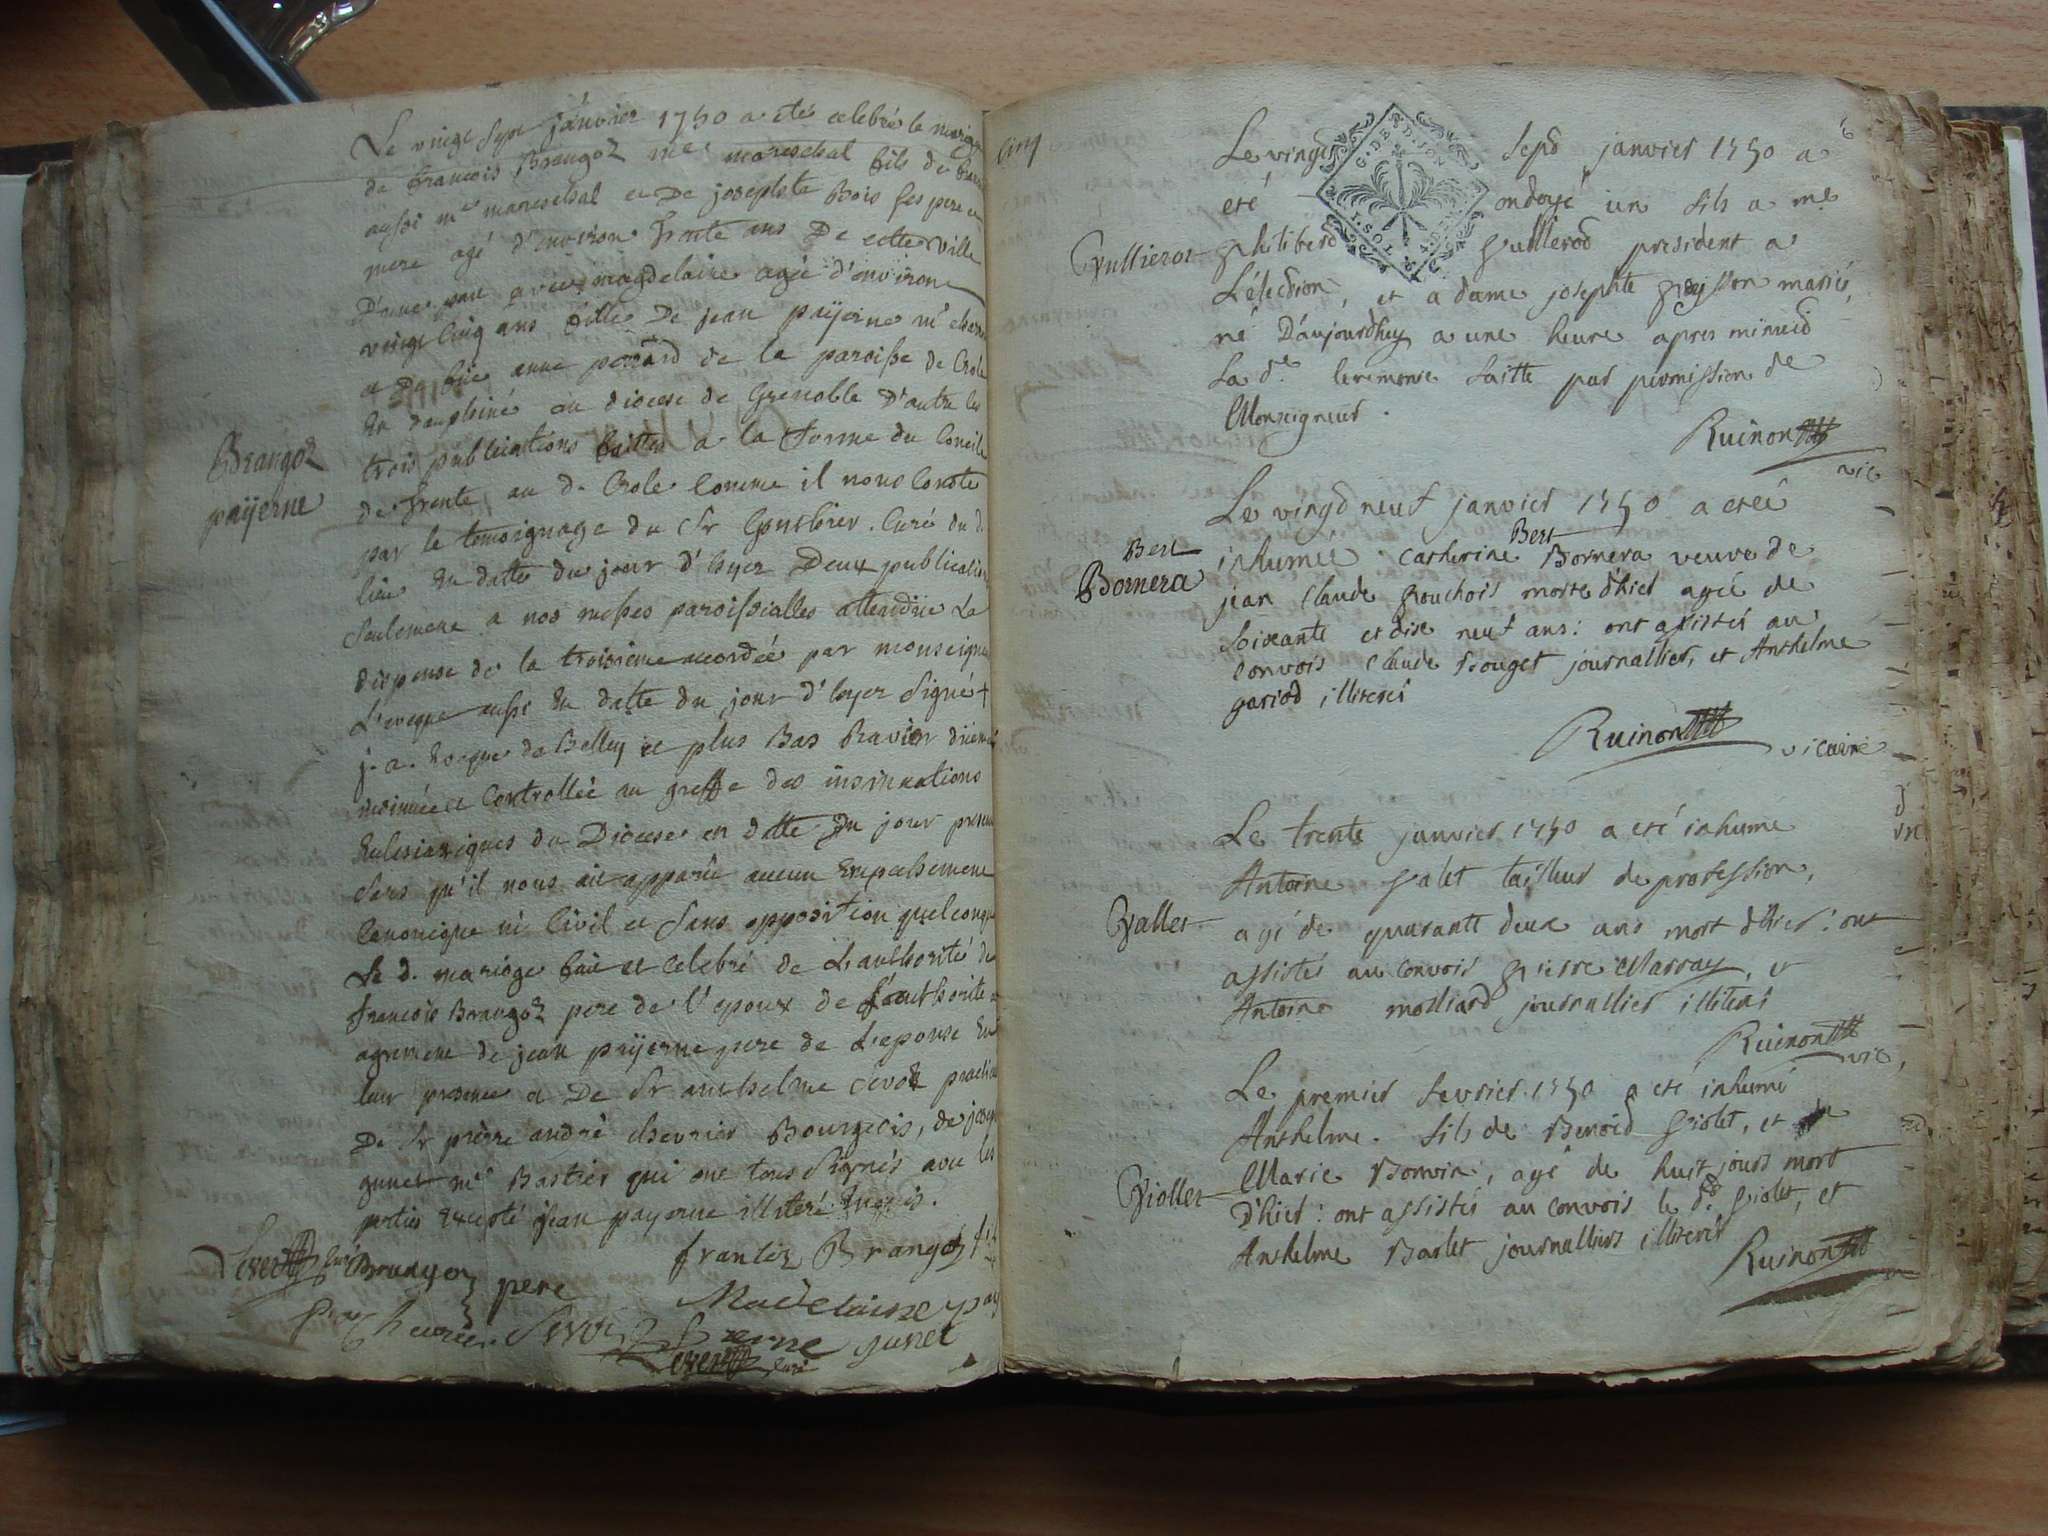 Le vingt sept janvier 1750 a eté celebré le mariage
de francois Brangoz me mareschal fils de fran
aussi me mareschal et De josephte Bois ses pere et
mere agé d'environ trente ans De cette ville
D'une part avec magdelaine agée d'environ
vingt cinq ans fille De jean payerne me
et De anne perrard de la paroisse de Crole
En dauphiné au diocese de Grenoble D'autre les
trois publications faittes a la forme du Concile
de Trente au d. Crole Comme il nous Conste
par le temoignage du Sr Curé du d.
lieu En datte du jour d'hyer Deux publication
Seulement a nos messes paroissialles attendüe La
dispense de la troisieme accordée par monseigneu
L'eveque aussi En datte du jour d'hyer Signé +
j. a. Eveque de Belley et plus Bas Ravier
insinuée et Controllée au greffe des insinuations
Eclesiastiques du Diocese en datte Du jour present
Sens qu'il nous ait apparû aucun Empeschement
Canonique ni Civil et Sans opposition quelconque
Le d. mariage fait et Celebré de L'authorité de
francois Brangoz pere de l'epoux de L'authorité et
agrement de jean payerne pere de L'epouse En
leur presence et De Sr anthelme Sevoz
De Sr pierre andré chevrier Bourgeois, de
gunet me Bastier qui ont tous Signés avec les
parties Excepté jean payerne illiteré Enquis.
Brangoz
payerne
curé Brangoz pere frantiz Brangoz fils
Madelaine pay
Sevoz erne gunet
curé
cinq
6
Le vingt sept janvier 1750 a
eté ondoyé un fils a me
Vullierot
philiberd Vullierod president a
L'élection, et a dame josephte mariés,
né D'aujourdhuy a une heure apres minuid
La de. ceremonie faitte par permission de
Monseigneur.
Ruinon
vic
Le vingd neuf janvier 1750 a eteé
Bert
Bornera
Bert
inhumée Catherine Bornera veuve de
jean Claude Pouchois morte d'hier agée de
soixante et dise neuf ans: ont assistés au
Convois Claude Bouget journallier, et Anthelme
gariod illiterés
Ruinon
vicaire
Le trente janvier 1750 a eté inhumé
Antoine Valet tailleur de profession,
Vallet
agé de quarante deux ans mort d'hier: ont
assistés au Convois pierre Marray, et
Antoine molliard journallier illiterés
Ruinon
vic,
Le premier fevrier 1750 a eté inhumé
Anthelme. fils de Benoid Violet, et de
Viollet
Marie Bonvin, agé de huit jours mort
D'hier: ont assistés au Convois le d. Violet, et
Anthelme Barlet journalliers illiterés
Ruinon